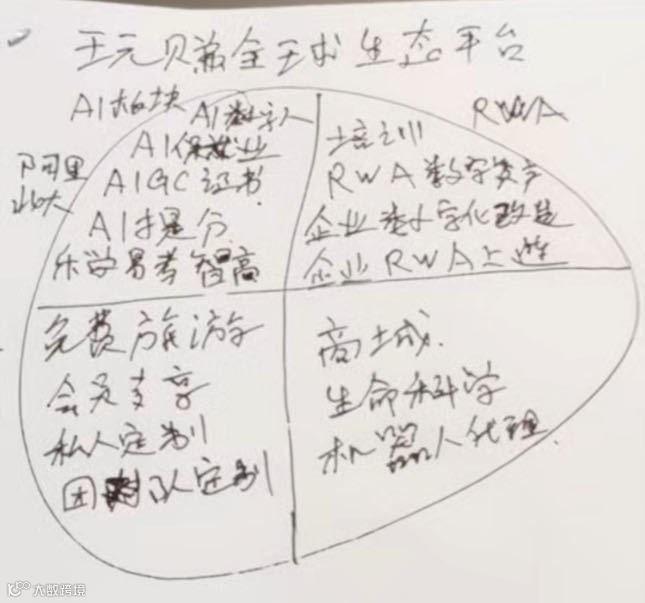 王元贝赢全球生态平台
AI板块 AI数字人
RWA
AI保就业
阿里
北大
AIGC证书
AI提分
乐学易考智高
培训
RWA数字资产
企业数字化改造
企业RWA上链
免费旅游
会员支享
私人定制
团队定制
商城
生命科学
机器人代理
大数跨境